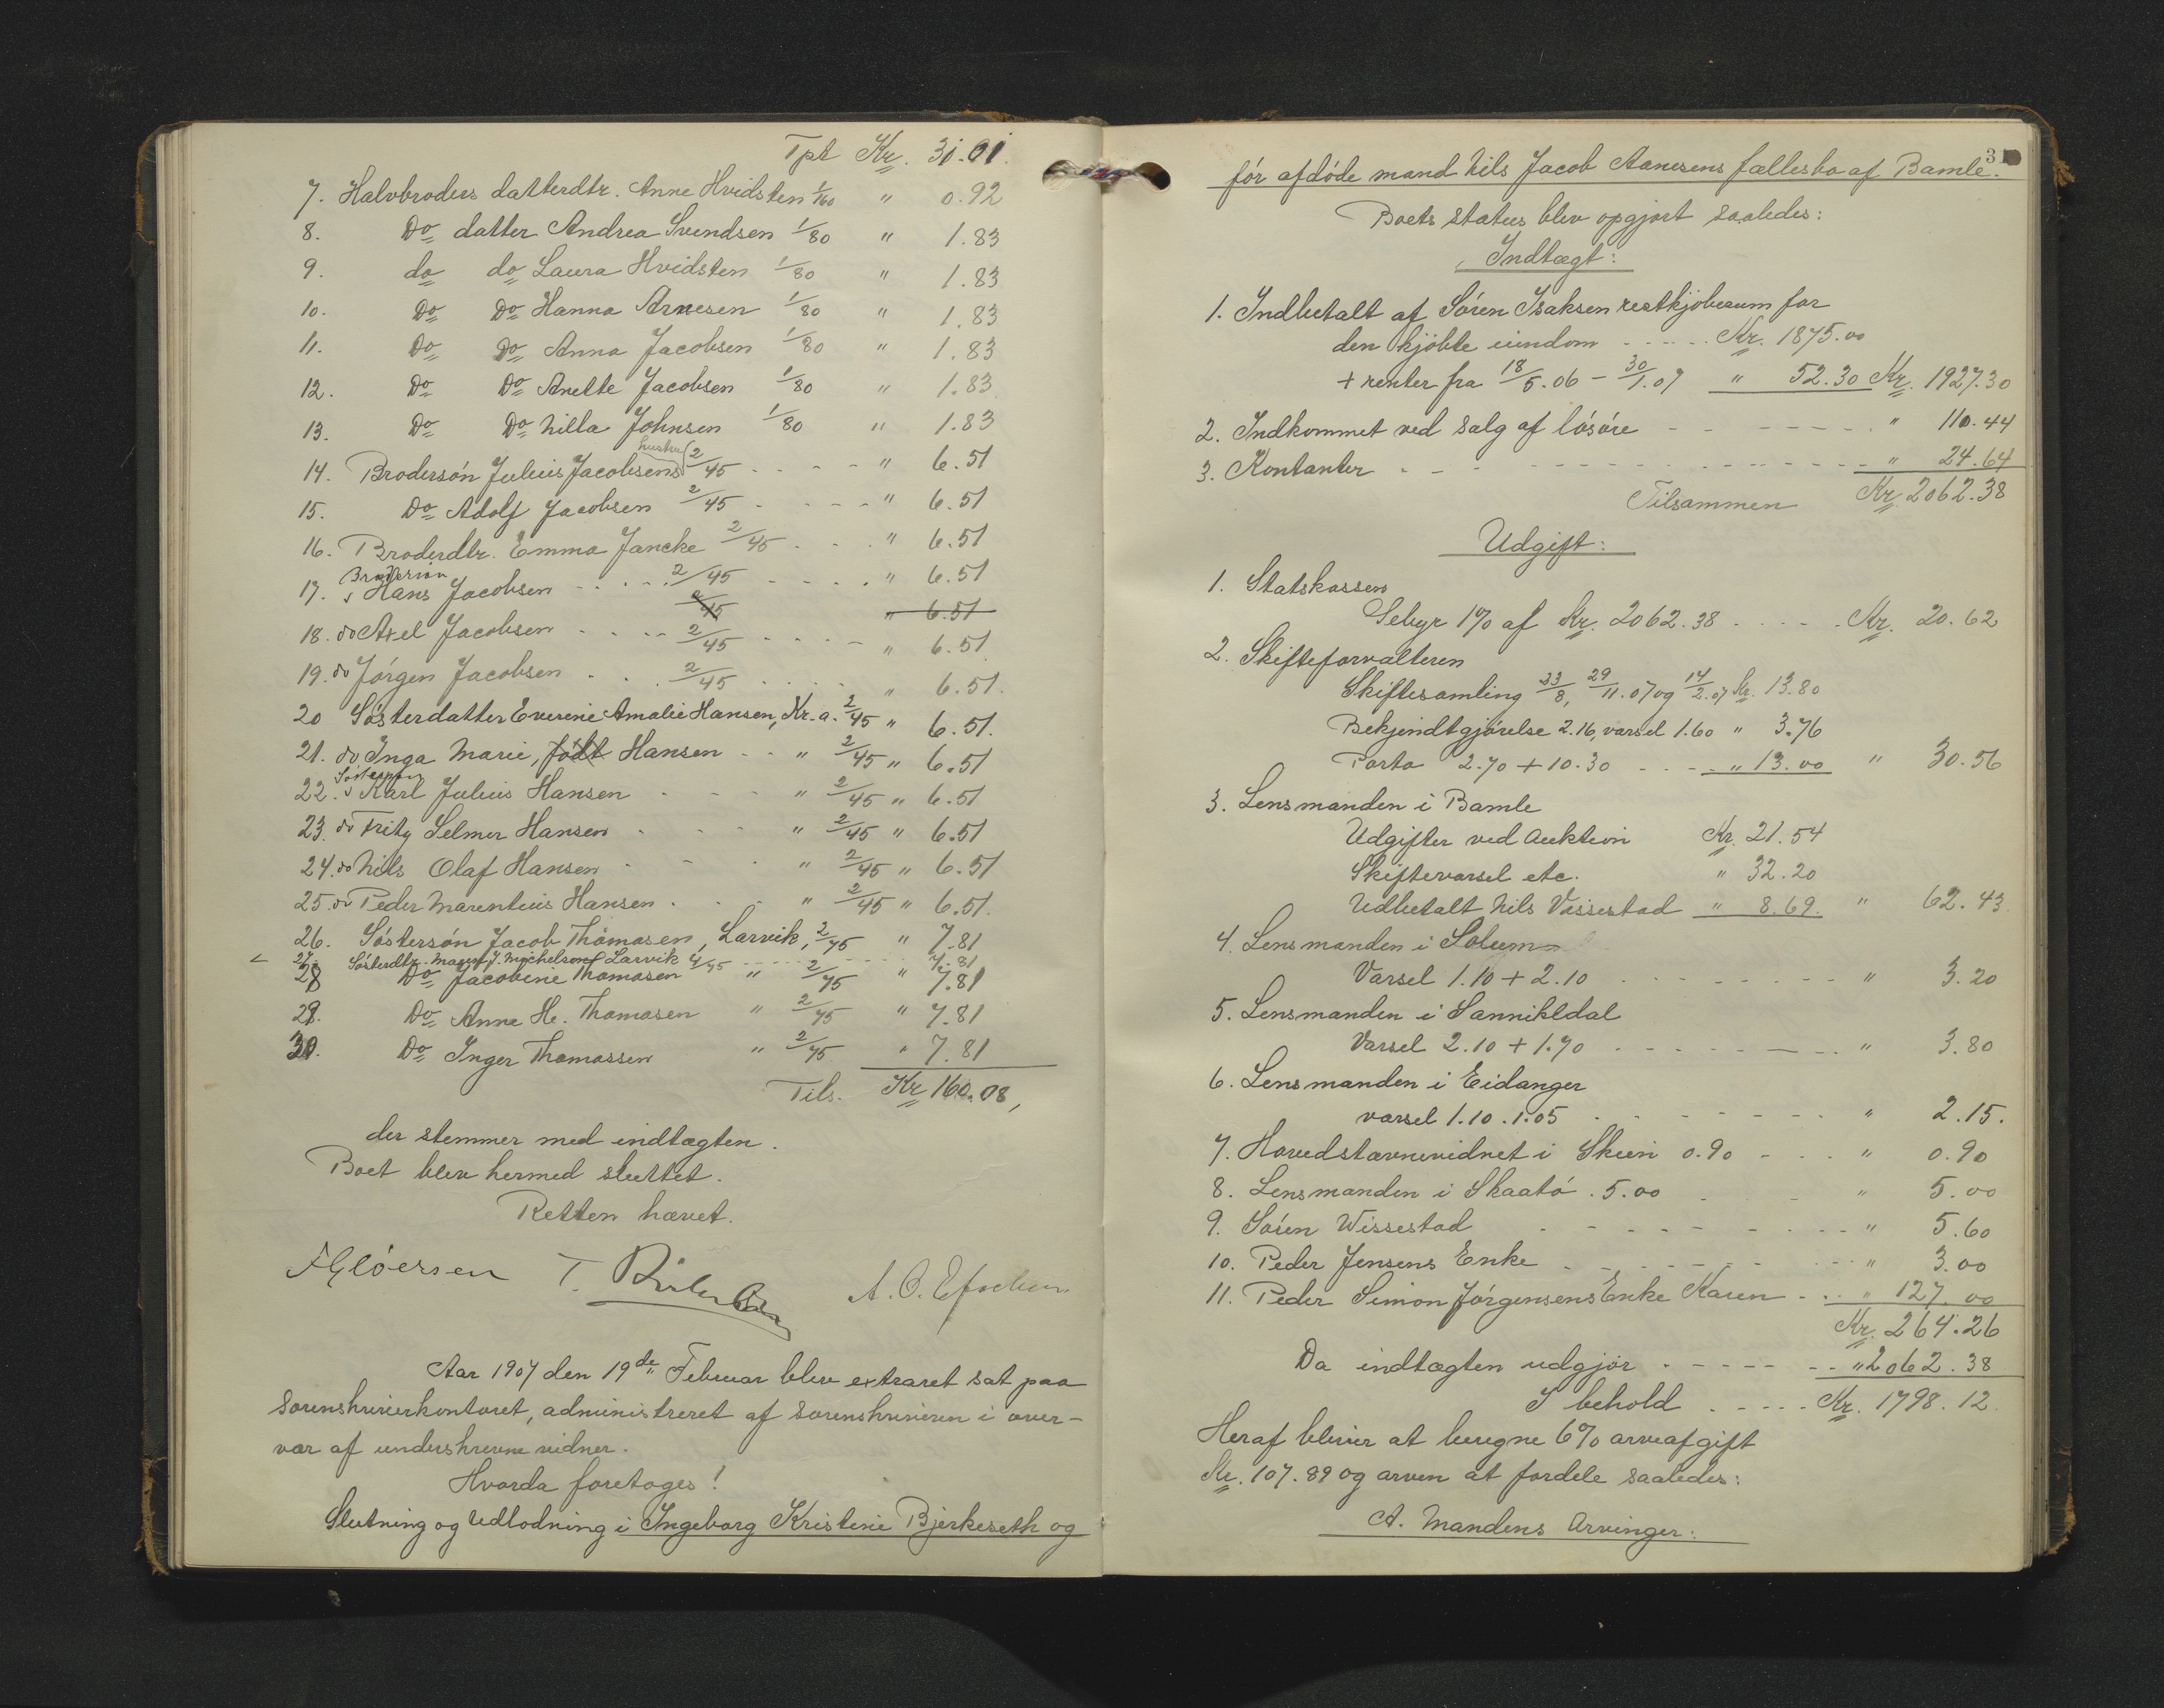 Tpt Kr. 31.01.
7. Halvbroders datterdtr. Anne Hvidsten 1/160 " 0.92
8. Do datter Andrea Svendsen 1/80 " 1.83
9. do do Laura Hvidsten 1/80 " 1.83
10. Do Do Hanna Arnesen 1/80 " 1.83
11. Do Do Anna Jacobsen 1/80 " 1.83
12. Do Do Anette Jacobsen 1/80 " 1.83
13. Do Do Nilla Johnsen 1/80 " 1.83
hustru
14. Brodersön Julius Jacobsens 2/45 - - - - " 6.51
15. Do Adolf Jacobsen 2/45 - - - - " 6.51
16. Broderdtr. Emma Jancke 2/45 - - - " 6.51
Brodersön
17. Hans Jacobsen - - - - 2/45 - - - - " 6.51
2/45 " 6.51
18. do Axel Jacobsen - - - - 2/45 - - - - " 6.51
19. do Jörgen Jacobsen - - - 2/45 - - - - " 6.51.
20 Sösterdatter Everine Amalie Hansen, Kr.a. 2/45 " 6.51.
21. do Inga Marie, födt Hansen - - " 2/45 " 6.51
Söstersön
22. Karl Julius Hansen - - - " 2/45 " 6.51
23. do Fritz Selmer Hansen - - - " 2/45 " 6.51
24. do Nils Olaf Hansen - - - " 2/45 " 6.51
25. do Peder Marentius Hansen . - - " 2/45 " 6.51.
26. Söstersön Jacob Thomasen, Larvik, 2/75 " 7.81
27. Sösterdtr. J. Michelsen Larvik 2/75 - - - - 7.81
28 Do Jacobine Thomasen " 2/75 " 7.81
29. Do Anne He. Thomasen " 2/75 " 7.81
30. Do Inger Thomassen " 2/75 " 7.81
Tils. Kr 160.08,
der stemmer med indtægten.
Boet blev hermed sluttet.
Retten hævet.
F Glöersen T.
Aar 1907 den 19de Februar blev extraret sat paa
Sorenskriverkontoret, administreret af Sorenskriveren i over-
vær af underskrevne vidner.
Hvorda foretoges!
Slutning og Udlodning i Ingeborg Kristine Bjerkeseth og
3
för afdöde mand Nils Jacob Aanesens fællesbo af Bamle.
Boets status blev opgjort saaledes:
Indtægt:
1. Indbetalt af Sören Isaksen restkjöbesum for
den kjöbte eiendom - - - - - Kr. 1875.00
+ renter fra 18/5.06 - 30/1.07 " 52.30 Kr. 1927.30
2. Indkommet ved salg af lösöre - - - - - - - " 110.44
3. Kontanter - - - - - - - - - - - - " 24.64
Tilsammen Kr. 2062.38
Udgift:
1. Statskassen
Gebyr 1% af Kr. 2062.38 - - - - - Kr. 20.62
2. Skifteforvalteren
Skiftesamling 23/8, 29/11.07 og 14/2.07 Kr. 13.80
Bekjendtgjörelse 2.16, varsel 1.60 " 3.76
Porto 2.70 + 10.30 - - - - " 13.00 " 30.56
3. Lensmanden i Bamle
Udgifter ved Auktion Kr. 21.54
Skiftevarsel etc. " 32.20
Udbetalt Nils Vissestad " 8.69. " 62.43.
4. Lensmanden i Solum
Varsel 1.10 + 2.10 - - - - - - - - " 3.20
5. Lensmanden i Sannikldal
Varsel 2.10 + 1.70 - - - - - - - - " 3.80
6. Lensmanden i Eidanger
varsel 1.10. 1.05 - - - - - - - - " 2.15.
7. Hovedstævnevidnet i Skien 0.90 - - - " 0.90
8. Lensmanden i Skaatö . 5.00 - - - " 5.00
9. Sören Wissestad - - - - - - - - " 5.60
10. Peder Jensens Enke - - - - - - - - " 3.00
11. Peder Simon Jörgensens Enke Karen - - - " 127.00
Kr. 264.26
Da indtægten udgjör - - - - - - - " 2062.38
I behold - - - - - Kr. 1798.12.
Heraf bliver at beregne 6% arveafgift
Kr. 107.89 og arven at fordele saaledes:
A. Mandens Arvinger: